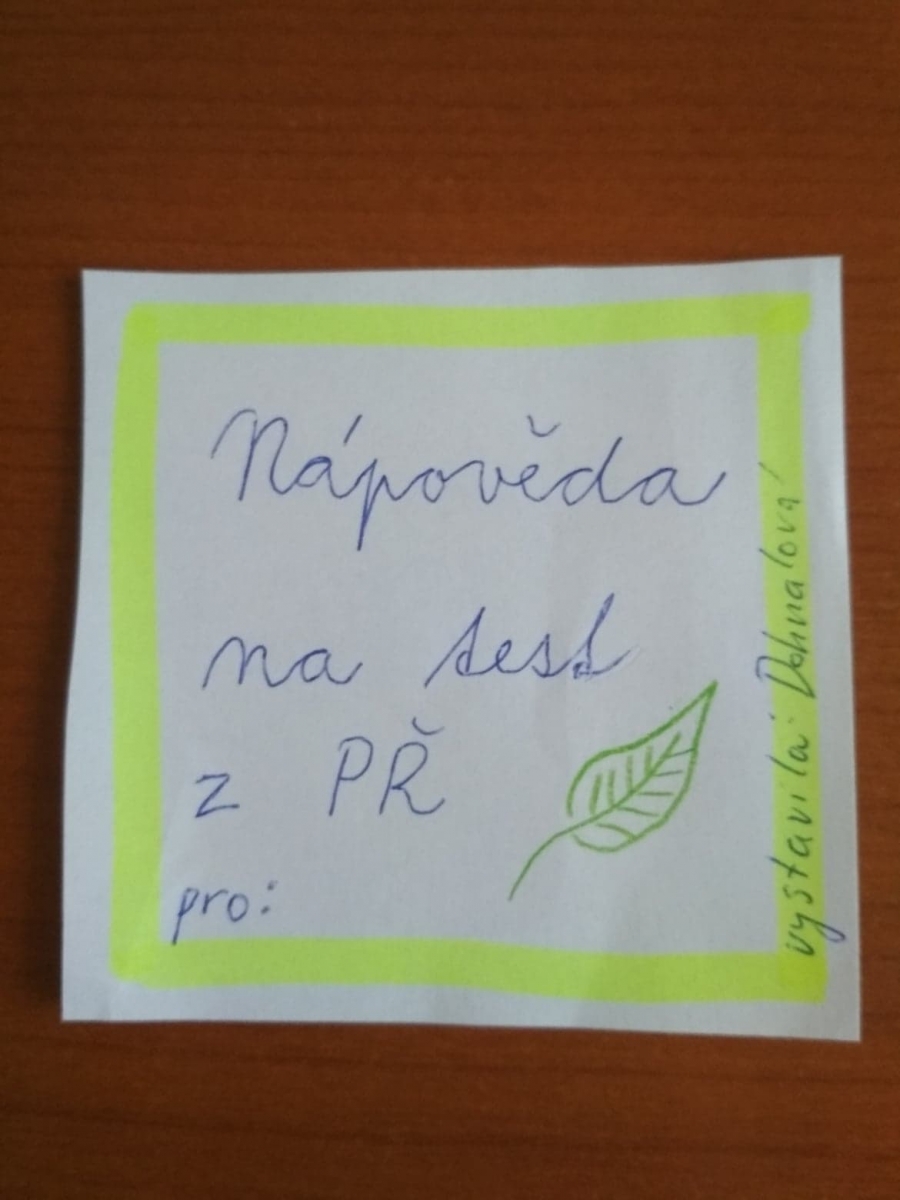 Nápověda
na test
z PŘ
pro:
vystavila: Dohnalová